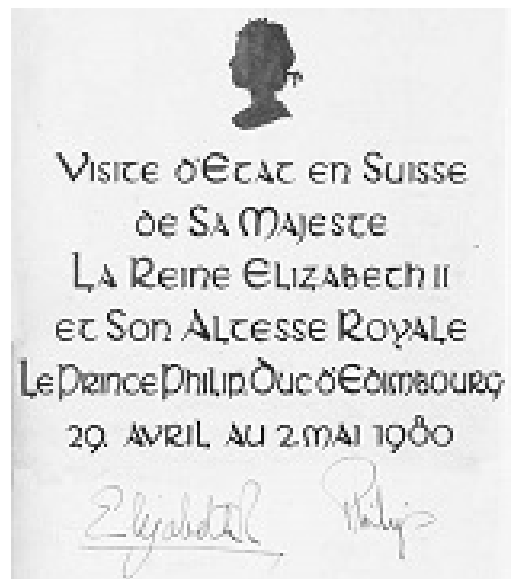 Visite d'Etat en Suisse
de Sa Majeste
La Reine Elizabeth II
et Son Altesse Royale
Le Prince Philip. Duc d'Edimbourg
29. Avril au 2. Mai 1980
Elizabeth R
Philip